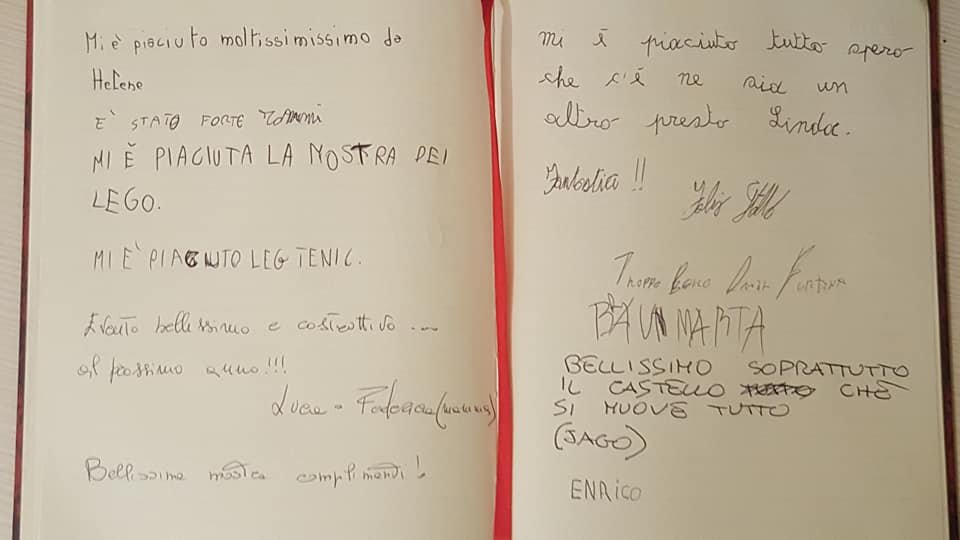 Mi è piaciuto moltissimissimo da
Helene
E' STATO FORTE
MI È PIACIUTA LA MOSTRA DEI
LEGO.
MI E' PIACIUTO LEG TENIC.
Evento bellissimo e costruttivo ....
al prossimo anno!!!
Luca e (mamma)
Bellissima mostra complimenti!
mi è piaciuto tutto spero
che c'é ne sia un
altro presto Linda.
Fantastica !!
TROPPO BELLO
MARTA
BELLISSIMO SOPRATTUTTO
IL CASTELLO CHE
SI MUOVE TUTTO
(JAGO)
ENRiCO